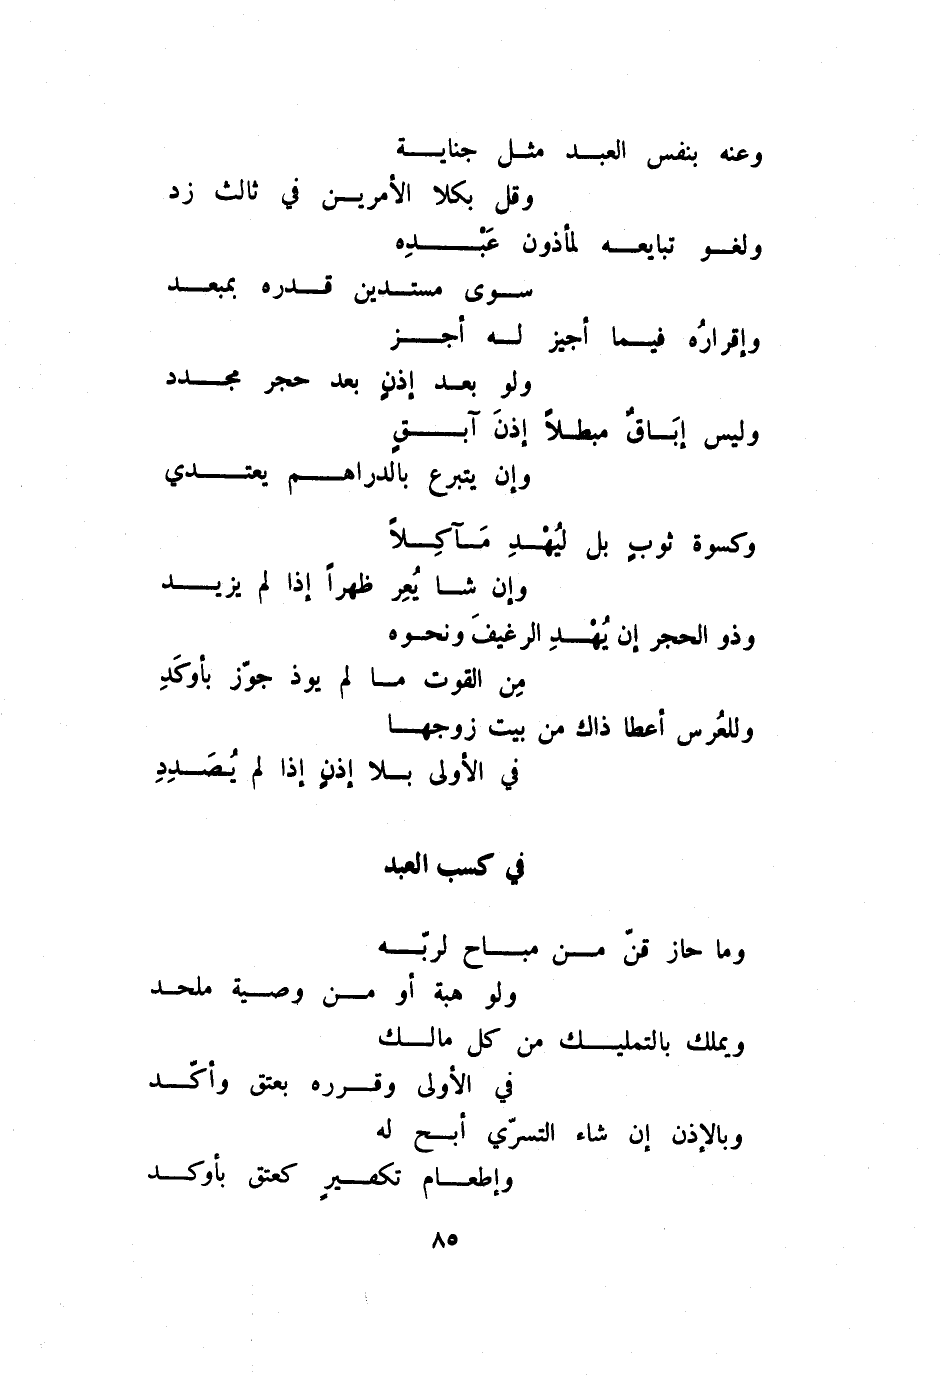 وعنه بنفس العبد مثل جناية
وقل بكلا الأمرين في ثالث زد
ولغو تبايعه لمأذون عَبْدِه
سوى مستدين قدره بمبعد
وإقرارُه فيما أجيز له أجز
ولو بعد إذنٍ بعد حجر مجدد
وليس إبَاقٌ مبطلاً إذنَ آبقٍ
وإن يتبرع بالدراهم يعتدي
وكسوة ثوبٍ بل ليُهْدِ مَآكِلاً
وإن شا يُعِر ظهراً إذا لم يزيد
وذو الحجر إن يُهْدِ الرغيفَ ونحوه
مِن القوت ما لم يوذ جوّز بأوكَدِ
وللعُرس أعطا ذاك من بيت زوجها
في الأولى بلا إذنٍ إذا لم يُصَدِدِ
في كسب العبد
وما حاز قنّ من مباح لربّه
ولو هبة أو من وصية ملحد
ويملك بالتمليك من كل مالك
في الأولى وقرره بعتق وأكّد
وبالإذن إن شاء التسرّي أبح له
وإطعام تكفيرٍ كعتق بأوكد
٨٥